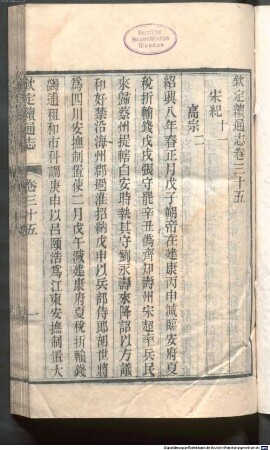 欽定續通志卷三十五
宋紀十
高宗二
紹興八年春正月戊子朔帝在建康丙申減臨安府夏
稅折輸錢戊戌張守罷辛丑僞齊知壽州宋超率兵民
來歸蔡州提轄白安時執其守劉永壽來降詔以方議
和好禁沿海州郡遏淮招納戊申以兵部侍郎胡世將
爲四川安撫制置使二月戊午減建康府夏稅折輸錢
蠲通租和市科調庚申以呂頤浩爲江東安撫制置大
欽定續通志
卷三十五
一